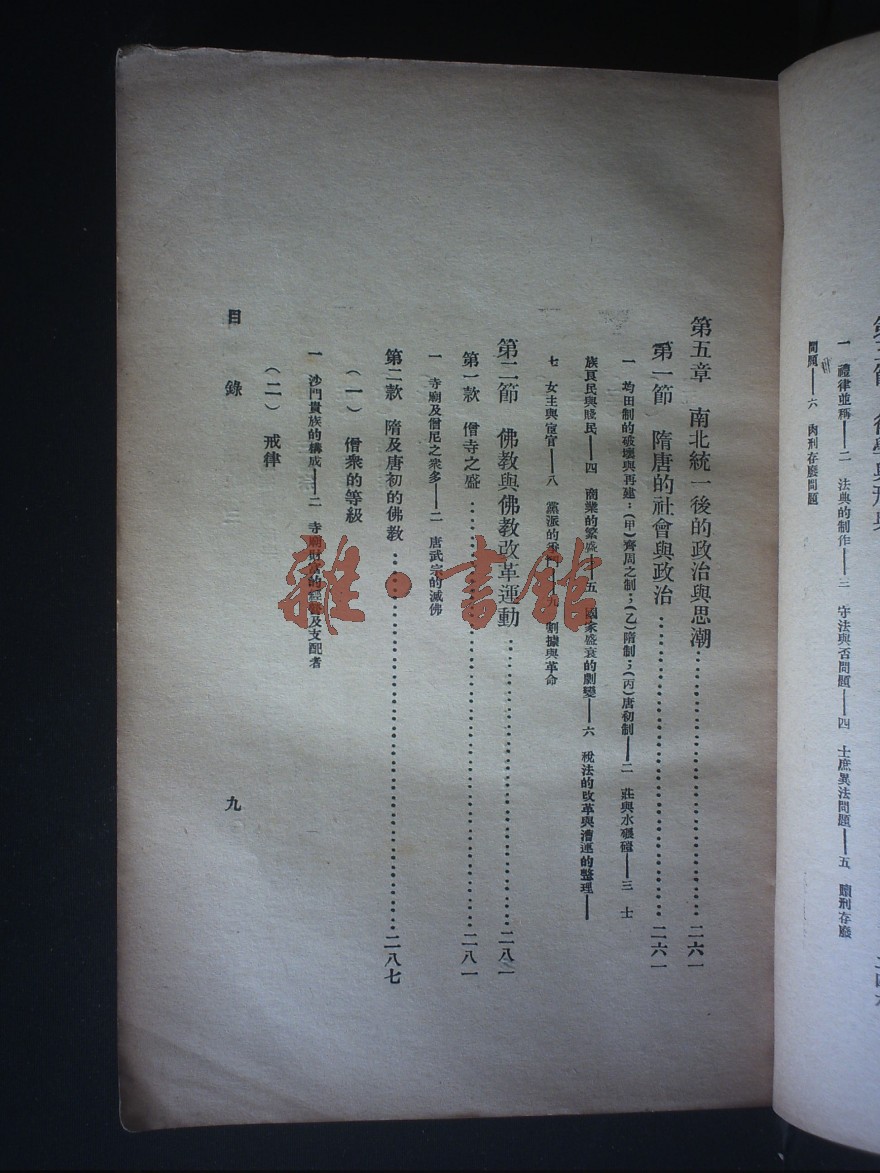 一 禮律並稱——二 法典的制作——三 守法與否問題——四 士庶異法問題——五 贖刑存廢
問題——六 肉刑存廢問題
第五章 南北統一後的政治與思潮……二六一
第一節 隋唐的社會與政治……二六一
一 均田制的破壞與再建：(甲)齊周之制；(乙)隋制；(丙)唐初制——二 莊與水碾磑——三 士
族良民與賤民——四 商業的繁盛——五 國家盛衰的劇變——六 稅法的改革與漕運的整理——
七 女主與宦官——八 黨派的——九 割據與革命
第二節 佛教與佛教改革運動……二八一
第一款 僧寺之盛……二八一
一 寺廟及僧尼之衆多——二 唐武宗的滅佛
第二款 隋及唐初的佛教……二八七
(一) 僧衆的等級
一 沙門貴族的構成——二 寺廟財富的經營及支配者
(二) 戒律
目錄
九
雜·書館